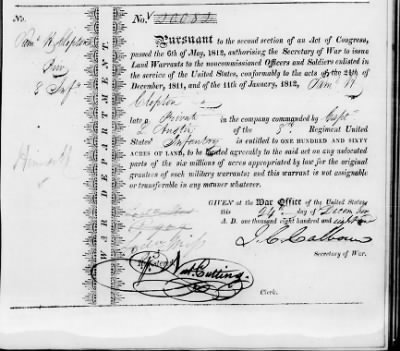 No.
No. 20082
Sam'l H Clopton
8 Inf
Himself
WAR DEPARTMENT.
Pursuant to the second section of an Act of Congress,
passed the 6th of May, 1812, authorising the Secretary of War to issue
Land Warrants to the noncommissioned Officers and Soldiers enlisted
in the service of the United States, conformably to the acts of the 24th of
December, 1811, and of the 11th of January, 1812, Sam'l H
Clopton
late a Private in the company commanded by Capt
of the 8th Regiment United
States Infantry is entitled to ONE HUNDRED AND SIXTY
ACRES OF LAND, to be located agreeably to the said act on any unlocated
parts of the six millions of acres appropriated by law for the original
grantees of such military warrants; and this warrant is not assignable
or transferable in any manner whatever.
GIVEN at the War Office of the United States,
this 24th day of Decem ber
A. D. one thousand eight hundred and
J. C. Calhoun
Secretary of War.
Nat. Cutting
Clerk.